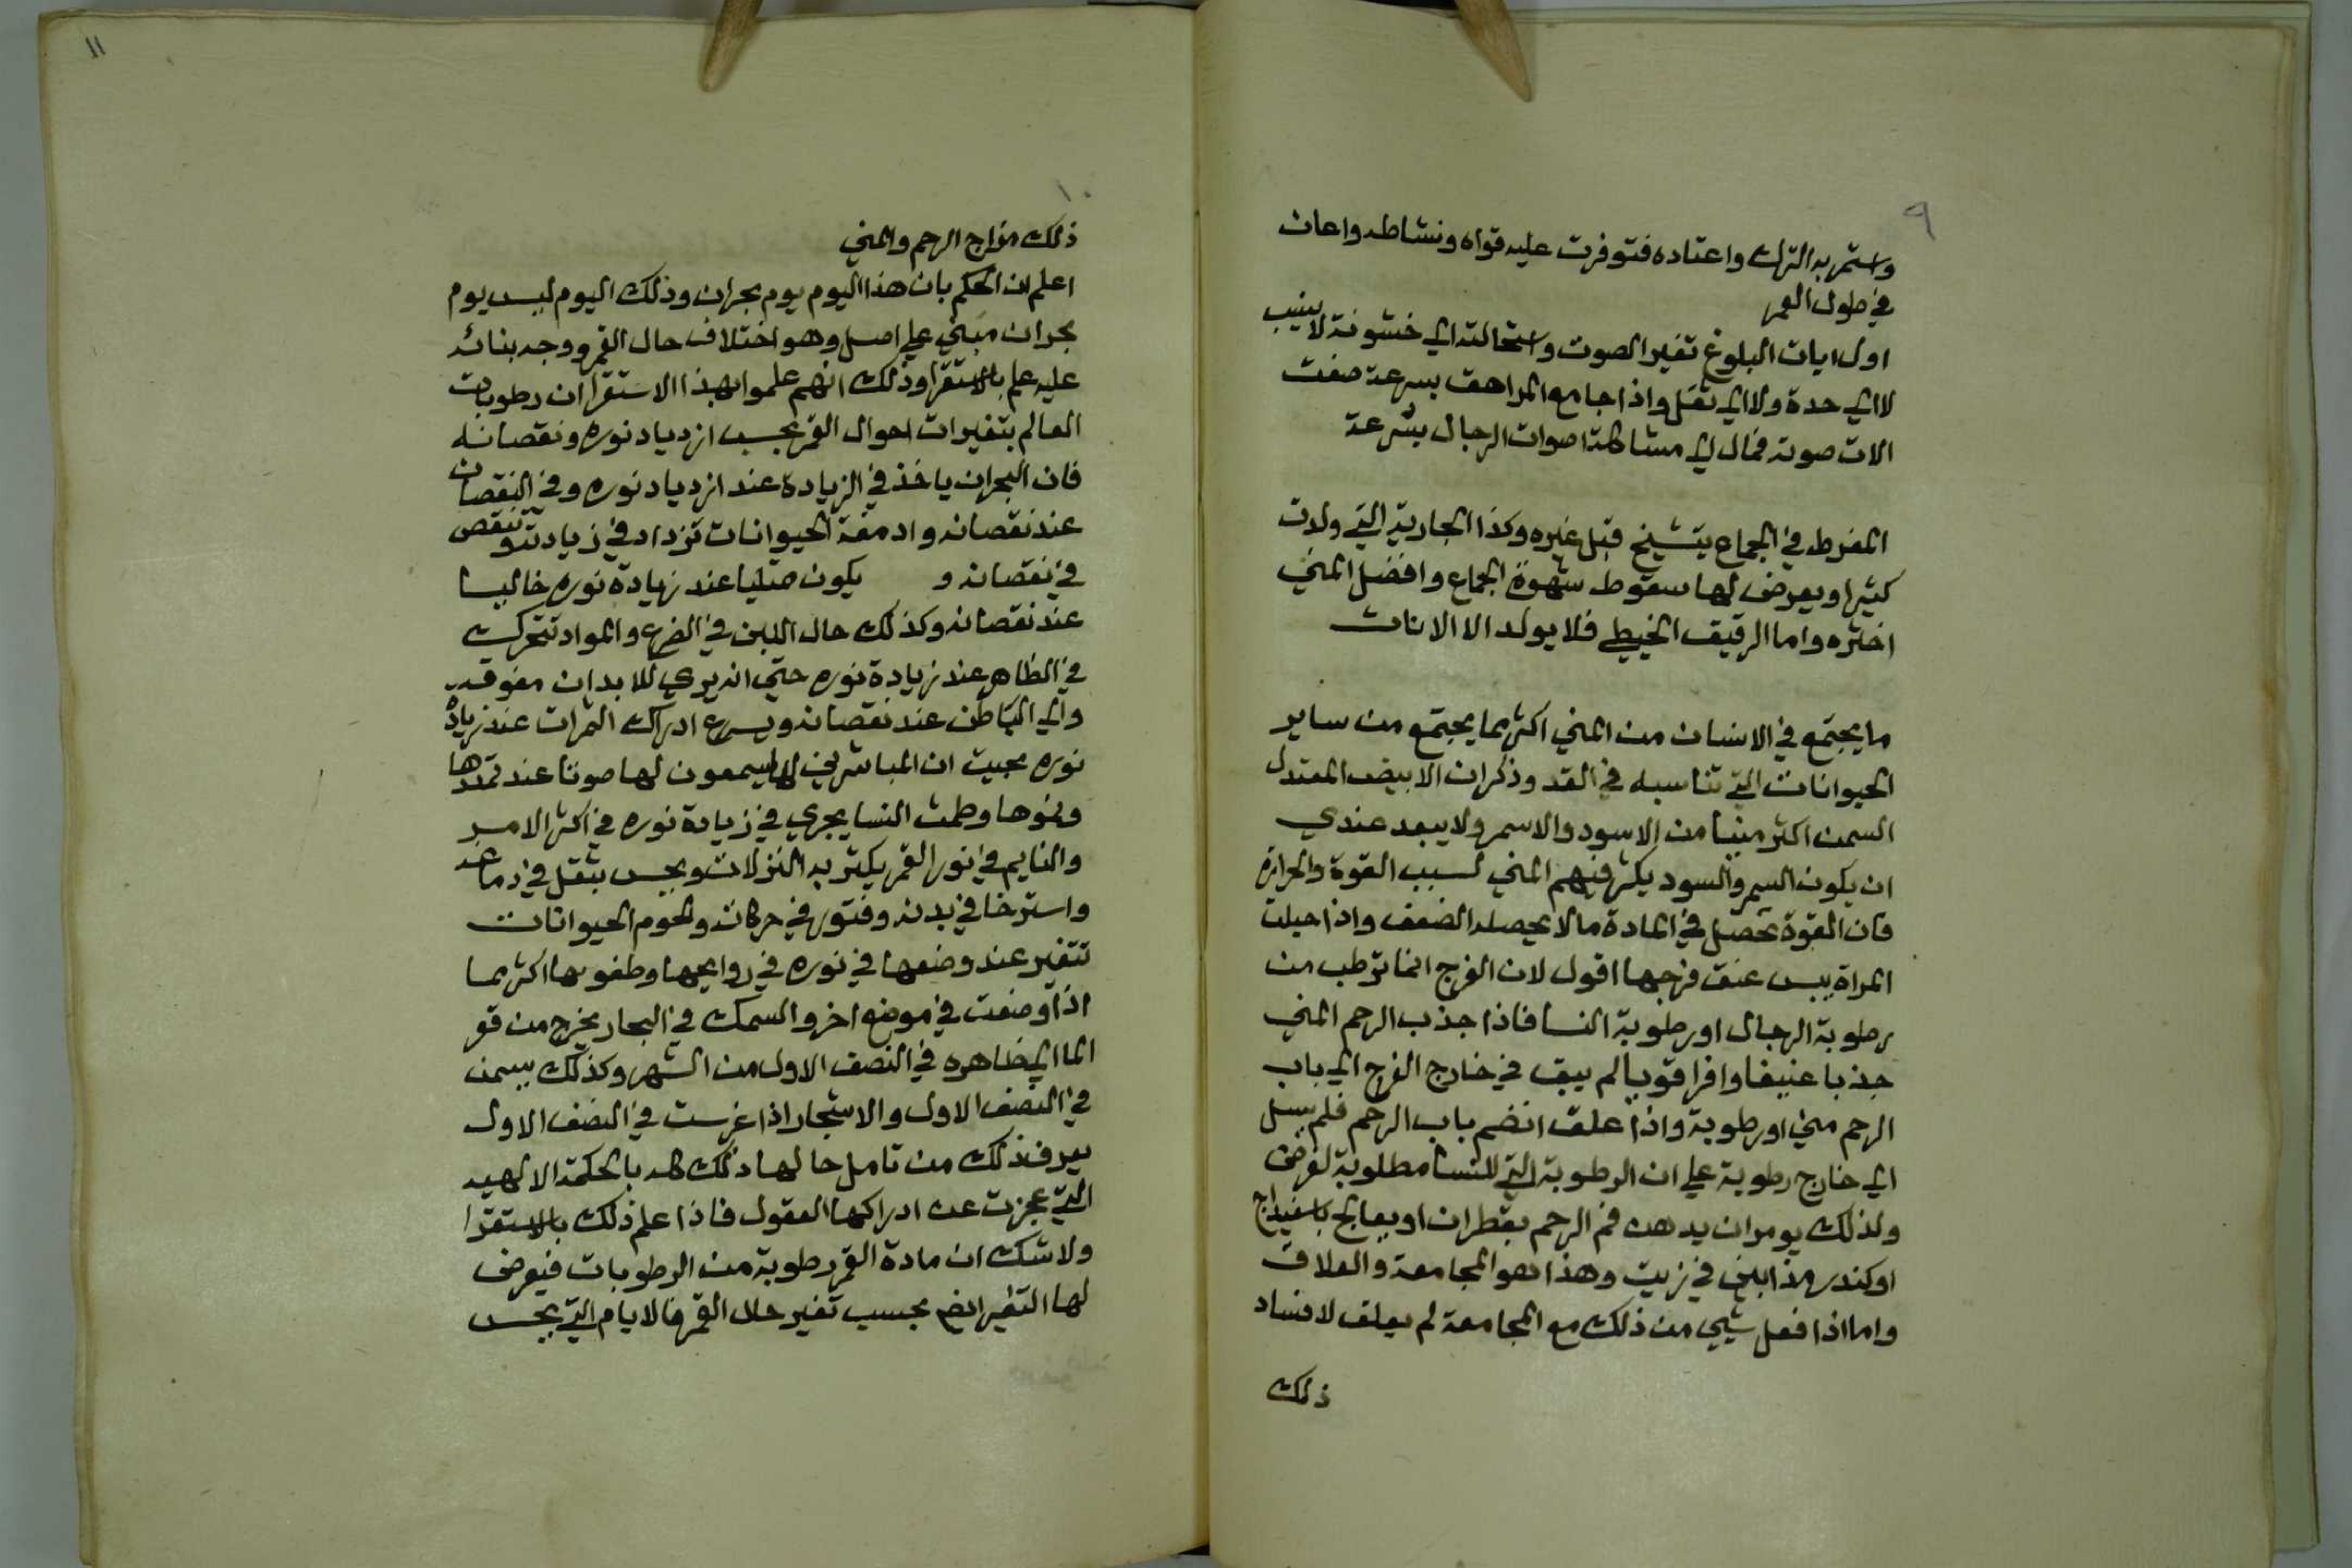 ٩
واستمر به الترك واعتاده فتوفرت عليه قواه ونشاطه واعان
في طول العمر
اول ايات البلوغ تغير الصوت واستحالته الي خشونة لا ينسب
لا الي حدة ولا الي ثقل واذا جامع المراهق بسرعة صفت
الات صوته فمال الي مشاكلة اصوات الرجال بسرعة
المفرط في الجماع يتشيخ قبل غيره وكذا الجارية التي ولادت
كثيرا ويعرض لها سقوط شهوة الجماع وافضل المني
اخثره واما الرقيق الخيطي فلا يولد الا الاناث
ما يجتمع في الانسان من المني اكثر مما يجتمع من ساير
الحيوانات التي تناسبه في القد وذكران الابيض المعتدل
السمن اكثر منيا من الاسود والاسمر ولا يبعد عندي
ان يكون السمر والسود يكثر فيهم المني لسبب القوة والحرارة
فان القوة تحصل في المادة ما لا يحصله الضعف واذا حبلت
المراة يبس عنق فرجها اقول لان الفرج انما يترطب من
رطوبة الرجال او رطوبة النسا فاذا جذب الرحم المني
جذبا عنيفا وافرا قويا لم يبق في خارج الفرج الي باب
الرحم مني او رطوبة واذا علقت انضم باب الرحم فلم يسل
الي خارج رطوبة علي ان الرطوبة التي للنسا مطلوبة لغرض
ولذلك يومر ان يدهن فم الرحم بقطران او يعالج باسفيداج
او كندر مذابين في زيت وهذا هو المجامعة والعلاق
واما اذا فعل شيي من ذلك مع المجامعة لم يعلق لافساد
ذلك
١٠
١١
ذلك مزاج الرحم والمني
اعلم ان الحكم بان هذا اليوم يوم بحران وذلك اليوم ليس يوم
بحران مبني علي اصل وهو اختلاف حال القمر ووجه بنائه
عليه علم بالاستقرا وذلك انهم علموا بهذا الاستقرا ان رطوبات
العالم بتغيرات احوال القمر بحسب ازدياد نوره ونقصانه
فان البحران ياخذ في الزيادة عند ازدياد نوره وفي النقصان
عند نقصانه وادمغة الحيوانات تزداد في زيادته وتنقص
في نقصانه و يكون ممتليا عند زيادة نوره خاليا
عند نقصانه وكذلك حال اللبن في الضرع والمواد تتحرك
في الظاهر عند زيادة نوره حتي انه يري للابدان
والي الباطن عند نقصانه ويسرع ادراك الثمرات عند زيادة
نوره بحيث ان المباشرين لها يسمعون لها صوتا عند تمددها
ونموها وطمث النسا يجري في زيادة نوره في اكثر الامر
والنايم في نور القمر يكثر به النزلات ويحس بثقل في دماغه
واسترخا في بدنه وفتور في حركاته ولحوم الحيوانات
تتغير عند وضعها في نوره في روايحها وطعومها اكثر مما
اذا وضعت في موضع اخر والسمك في البحار يخرج من قعر
الما الي ظاهره في النصف الاول من الشهر وكذلك يسمن
في النصف الاول والاشجار اذا غرست في النصف الاول
يعرف ذلك من تامل حالها ذلك كله بالحكمة الالهيه
التي عجزت عن ادراكها العقول فاذا علم ذلك بالاستقرا
ولا شك ان مادة القمر رطوبة من الرطوبات فيعرض
لها التغير ايضا بحسب تغير حال القمر فالايام التي يحس